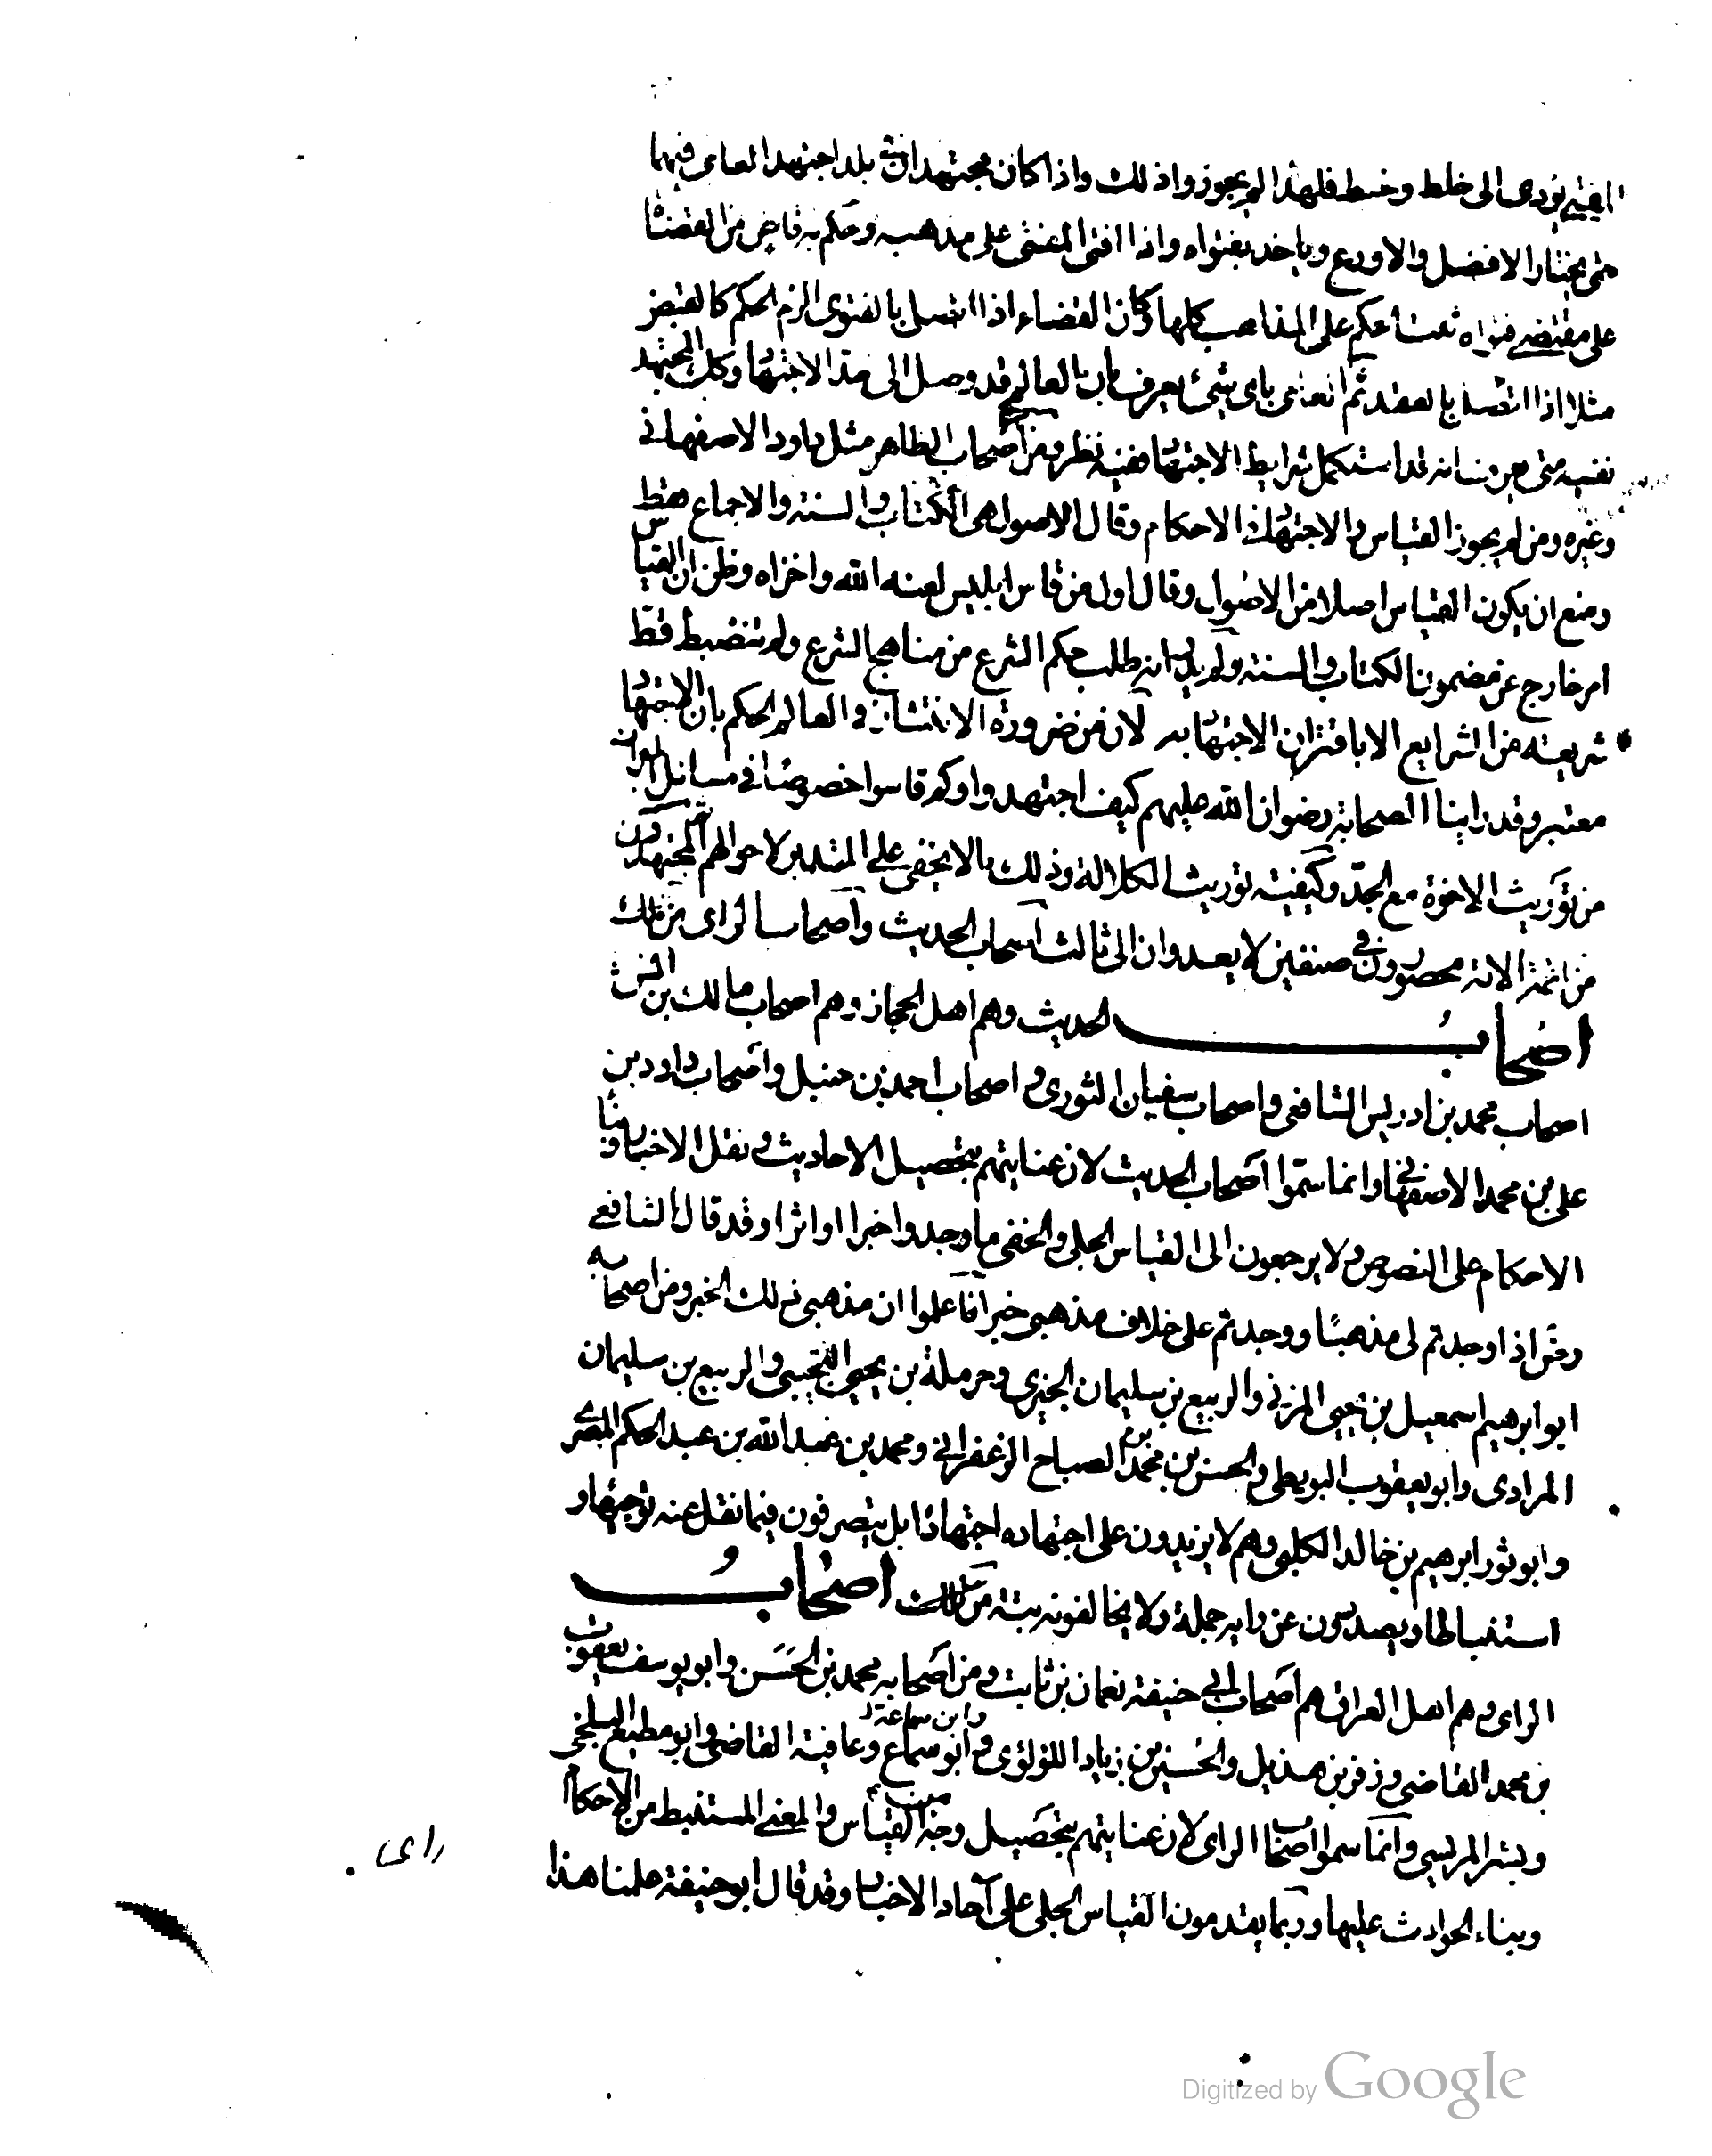 الفتيى يودى الى خلط وخبط فلهذا لم يجوزوا ذلك واذا كان مجتهدان فى بلد اجتهد العامى فيهما
حتى يختار الافضل والاورع وياخذ بفتواه واذا افتى المفتى على مذهبه وحكم به قاض من القضاة
على مقتضى فتواه ثبت الحكم على المذاهب كلها وكان القضاء اذا اتصل بالفتوى الزم الحكم كالقبض
مثلا اذا اتصل بالعقد ثم العامى باى شىء يعرف بان العالم قد وصل الى حد الاجتهاد وكذلك المجتهد
نفسه متى يعرف انه قد استكمل شرايط الاجتهاد ففيه نظر ومن اصحاب الظاهر مثل داود الاصفهانى
وغيره ومن لم يجوز القياس والاجتهاد فى الاحكام وقال الاصول هى الكتاب والسنة والاجماع فقط
ومنع ان يكون القياس اصلا من الاصول وقال اول من قاس ابليس لعنه الله واخزاه وظن ان القياس
امر خارج عن مضمون الكتاب والسنة ولم يدر انه طلب حكم الشرع من مناهج الشرع ولم تنضبط قط
شريعة من الشرايع الا باقتران الاجتهاد به لان من ضرورة الانتشار فى العالم الحكم بان الاجتهاد
معتبر وقد راينا الصحابة رضوان الله عليهم كيف اجتهدوا وكم قاسوا خصوصا فى مسائل الميراث
من توريث الاخوة مع الجد وكيفية توريث الكلالة وذلك مالا يخفى على المتدبر لاحوالهم ثم المجتهدون
من ائمة الامة محصورون فى صنفين لا يعدوان الى ثالث اصحاب الحديث واصحاب الراى من ذلك
اصحاب الحديث وهم اهل الحجاز وهم اصحاب مالك بن انس
اصحاب محمد بن ادريس الشافعى واصحاب سفيان الثورى واصحاب احمد بن حنبل واصحاب داود بن
على بن محمد الاصفهانى وانما سموا اصحاب الحديث لان عنايتهم بتحصيل الاحاديث ونقل الاخبار وبناء
الاحكام على النصوص ولا يرجعون الى القياس الجلى والخفى ما وجدوا خبرا او اثرا وقد قال الشافعى
رضى اذا وجدتم لى مذهبا ووجدتم على خلاف مذهبى خبرا فاعلموا ان مذهبى ذلك الخبر ومن اصحابه
ابو ابرهيم اسمعيل بن يحيى المزنى والربيع بن سليمان الجيزى وحرملة بن يحيى التجيبى والربيع بن سليمان
المرادى وابو يعقوب البويطى والحسن بن محمد بن الصباح الزعفرانى ومحمد بن عبد الله بن عبد الحكم المصرى
وابو ثور ابرهيم بن خالد الكلبى وهم لا يزيدون على اجتهاده اجتهادا بل يتصرفون فيما نقل عنه توجيها و
استنباطا ويصدرون عن رايه جملة ولا يخالفونه بتة من ذلك اصحاب
الراى وهم اهل العراق هم اصحاب ابى حنيفة نعمان بن ثابت ومن اصحابه محمد بن الحسن وابو يوسف يعقوب
بن محمد القاضى وزفر بن هذيل والحسين بن زياد اللؤلؤى وابو سماع وابن سماعة وعافية القاضى وابو مطيع البلخى
وبشر المريسى وانما سموا اصحاب الراى لان عنايتهم بتحصيل وجه من القياس والمعنى المستنبط من الاحكام
وبناء الحوادث عليها وربما يقدمون القياس الجلى على آحاد الاخبار وقد قال ابو حنيفة علمنا هذا
راى
Digitized by Google